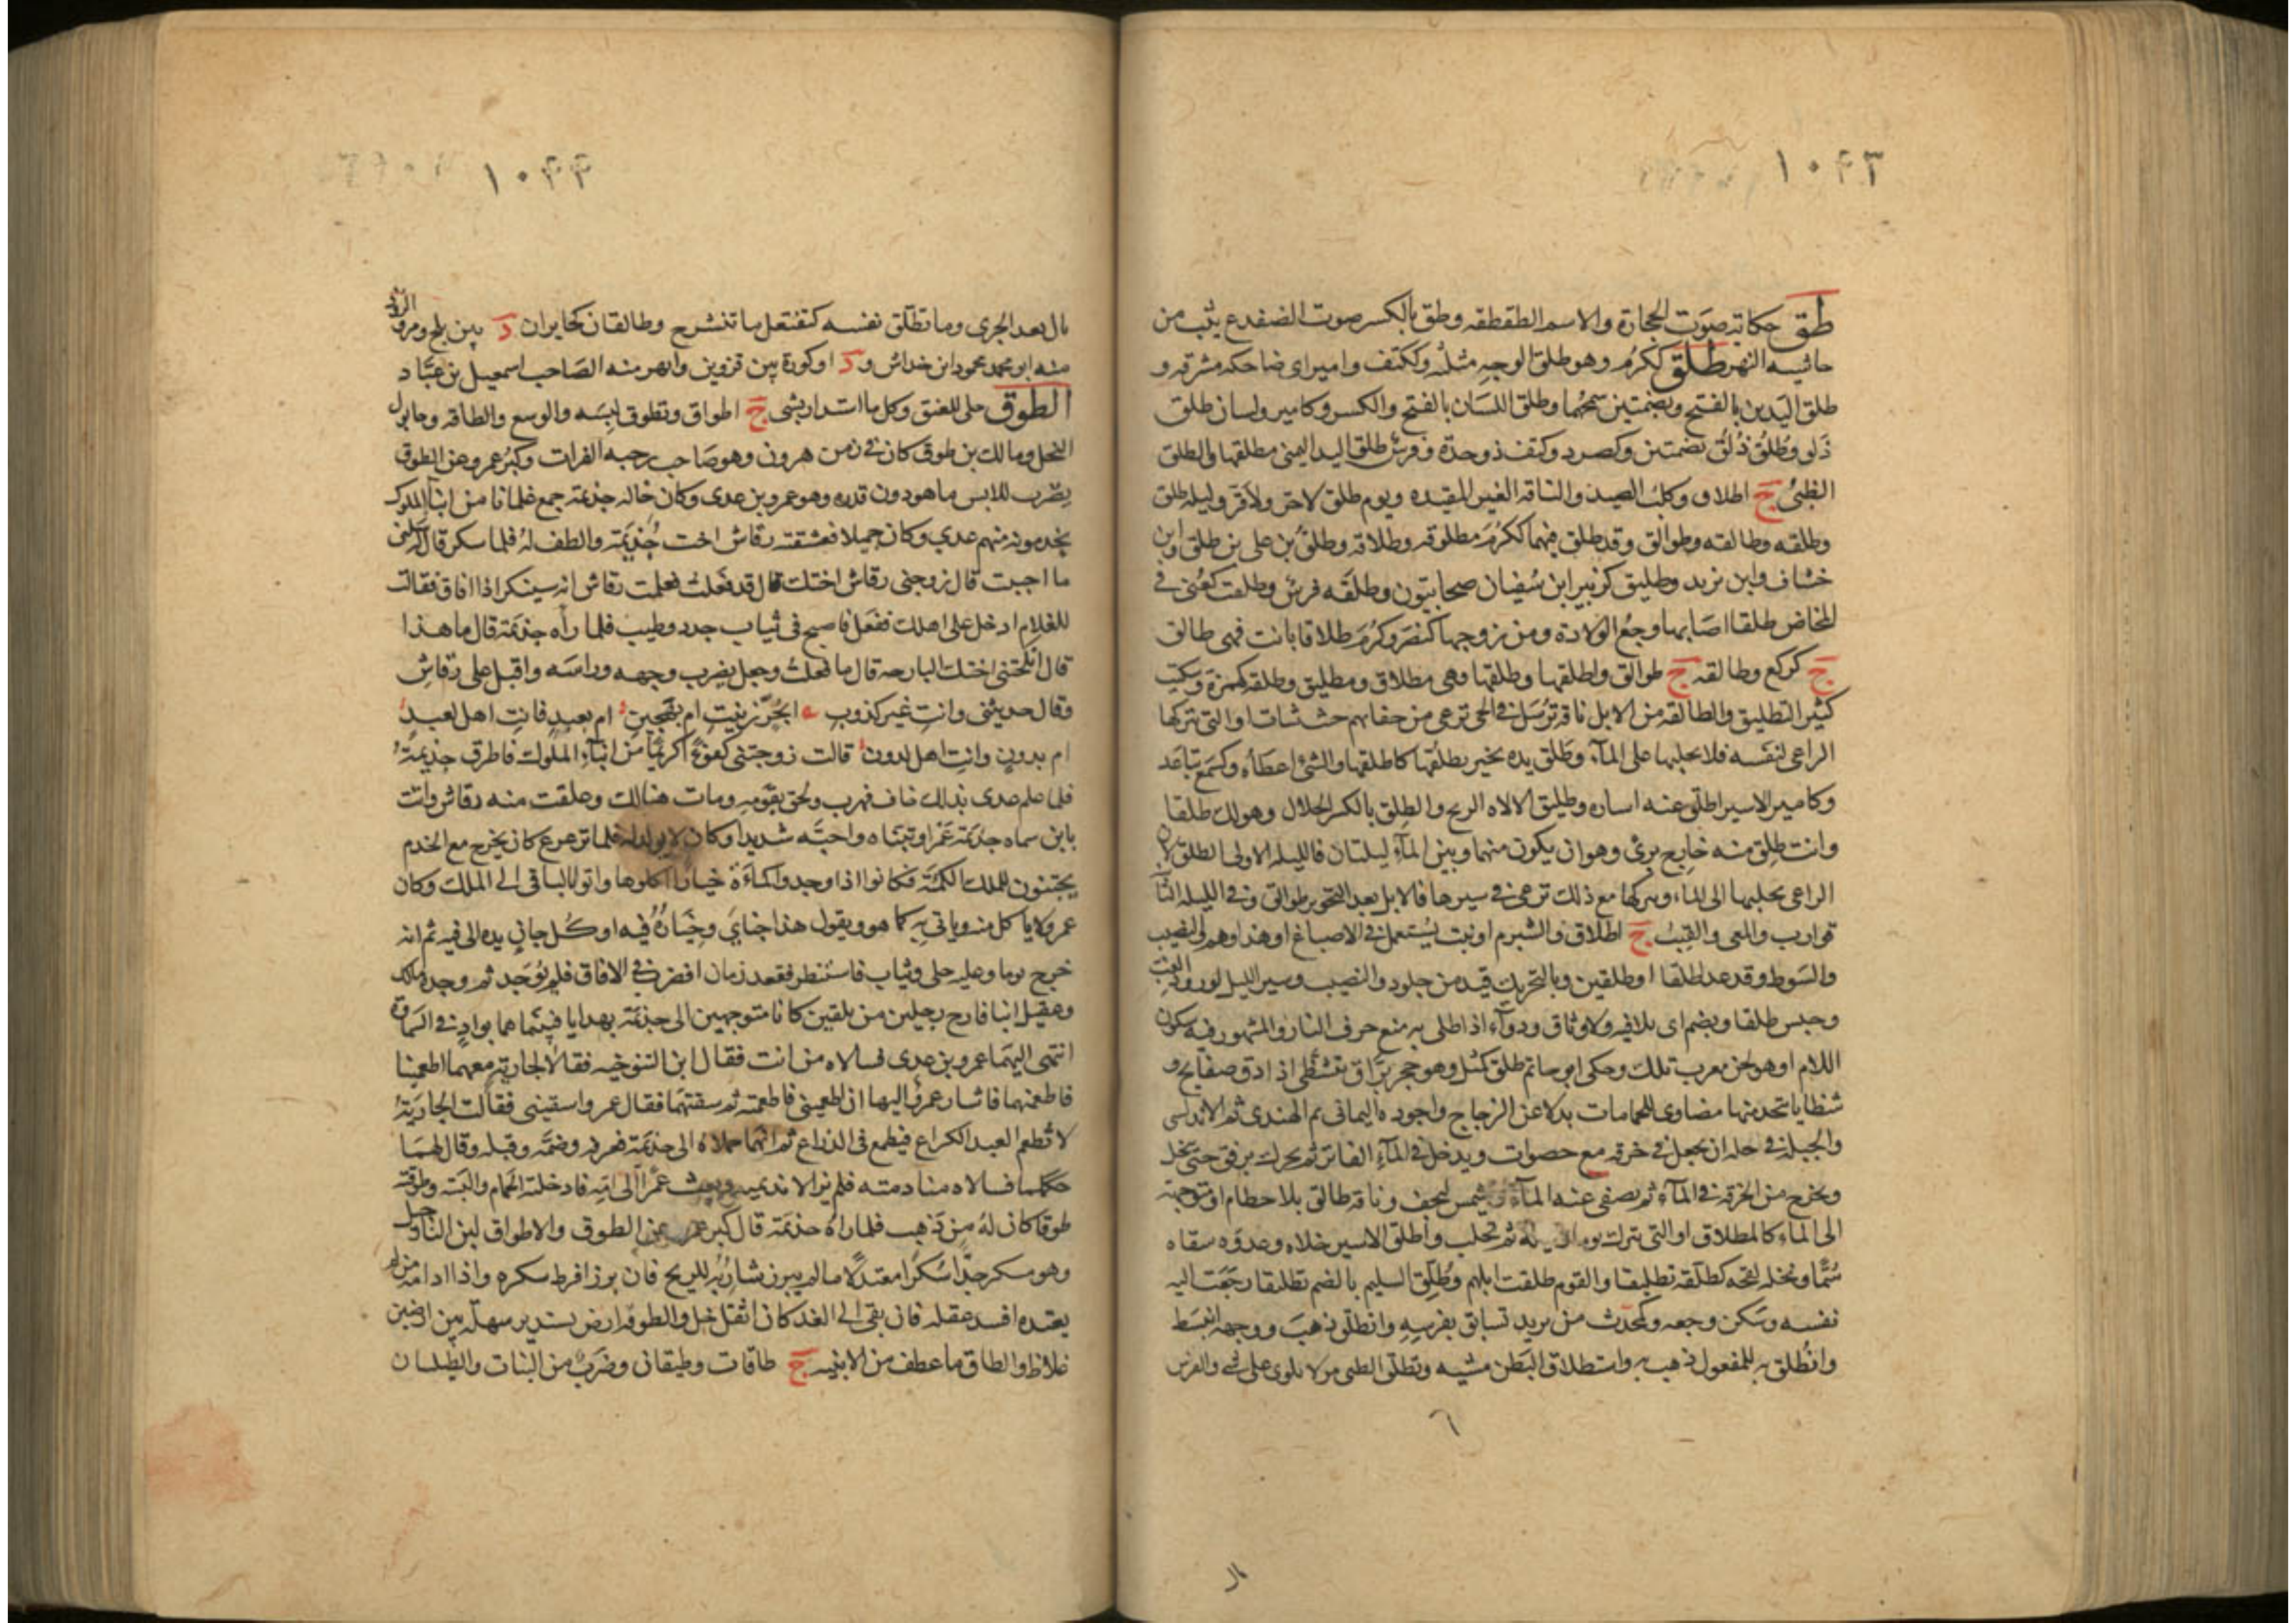 ١٠٤٣
طق حكاية صوت الحجارة والاسم الطقطقه وطق بالكسر صوت الضفدع يثب من
حاشيه النهر طلق ككرم وهو طلق الوجه مثلثه وككتف وامير اى ضاحكه مشرقه و
طلق اليدين بالفتح وبضمتين سمحهما وطلق اللسان بالفتح والكسر وكامير ولسان طلق
ذلق وطلق ذلق بضمتين وكصرد وكتف ذو حدة وفرس طلق اليد اليمنى مطلقها والطلق
الظبى ج اطلاق وكلب الصيد والناقه الغير المقيده ويوم طلق لا حر ولا قر وليله طلق
وطلقه وطالقه وطوالق وقد طلق فيهما ككرم طلوقه وطلاقه وطلق بن على بن طلق وابن
خشاف وابن يزيد وطليق كزبير ابن سفيان صحابيون وطلقه فرس وطلقت كعنى فى
المخاض طلقا اصابها وجع الولادة ومن زوجها كنصر وكرم طلاقا بانت فهى طالق
ج كركع وطالقه ج طوالق واطلقها وطلقها وهى مطلاق ومطليق وطلقه كهمزة وسكيت
كثير التطليق والطالقه من الابل ناقه ترسل فى الحى ترعى من جنابهم حيث شات او التى يتركها
الراعى لنفسه فلا يحلبها على المآء وطلق يده بخير يطلقها كاطلقها والشئ اعطاه وكسمع تباعد
وكامير الاسير اطلق عنه اساره وطليق الالاه الريح والطلق بالكسر الحلال وهو لك طلقا
وانت طلق منه خارج برئ وهو ان يكون منهما وبين المآء ليلتان فالليله الاولى الطلق لان
الراعى يحلبها الى الماء ويتركها مع ذلك ترعى فى سيرها فالابل بعد التحويز طوالق وفى الليله الثا
قوارب والمعى والقتب ج اطلاق والشبرم او نبت يستعمل فى الاصباغ او هذا وهم والنصيب
والشوط وقد عدا طلقا او طلقين وبالتحريك قيد من جلود والنصيب وسير الليل لورود الغب
وحبس طلقا وبضم اى بلا قيد ولا وثاق ودوآء اذا طلى به منع حرق النار والمشهور فيه سكون
اللام او هو لحن معرب تلك وحكى ابو حاتم طلق كمثل وهو حجر براق يتشظى اذا دق صفايح و
شظايا يتخذ منها مضاوى للحمامات بدلا عن الزجاج واجوده اليمانى ثم الهندى ثم الاندلسى
والحيله فى حله ان يجعل فى خرقه مع حصوات ويدخل فى المآء الفاتر ثم يحرك برفق حتى ينحل
ويخرج من الخرقه فى المآء ثم يصفى عنه المآء ويشمس ليجف وناقه طالق بلا خطام او متوجهة
الى الماء كالمطلاق او التى تترك يوما وليلة ثم تحلب واطلق الاسير خلاه وعدوه سقاه
سما ونخله لقحه كطلقه تطليقا والقوم طلقت ابلهم وطلق السليم بالضم تطليقا رجعت اليه
نفسه وسكن وجعه وكمحدث من يريد تسابق بفرسه وانطلق ذهب ووجهه انبسط
وانطلق به للمفعول ذهب به واستطلاق البطن مشيه وتطلق الظبى مر لا يلوى على شئ والفرس
١٠٤٤
بال بعد الجرى وما تطلق نفسه كتفتعل ما تنشرح وطالقان كخابران د بين بلخ ومرو الروذ
منه ابو محمد محمود ابن خداش و د او كورة بين قزوين وابهر منه الصاحب اسمعيل بن عباد
الطوق حلى للعنق وكل ما استدار بشى ج اطواق وتطوق لبسه والوسع والطاقه وحابول
النخل ومالك بن طوق كان فى زمن هرون وهو صاحب رحبه الفرات وكبر عمرو عن الطوق
يضرب للابس ما هو دون قدره وهو عمرو بن عدى وكان خاله جذيمة جمع غلمانا من ابنآء الملوك
يخدمونه منهم عدي وكان جميلا فعشقته رقاش اخت جذيمة والطف له فلما سكر قال له سلنى
ما احببت قال زوجنى رقاش اختك قال قد فعلت فعلمت رقاش انه سينكر اذا افاق فقالت
للغلام ادخل على اهلك ففعل فاصبح فى ثياب جدد وطيب فلما رآه جذيمة قال ما هذا
قال انكحتنى اختك البارحه قال ما فعلت وجعل يضرب وجهه وراسه واقبل على رقاش
وقال حديثنى وانت غير كذوب ء ابحر زنيت ام بهجين ء ام بعبد فانت اهل لعبد
ام بدون وانت اهل لدون قالت زوجتنى كفوا كريما من ابنآء الملوك فاطرق جذيمة
فلما علم عدى بذلك خاف فهرب ولحق بقومه ومات هنالك وعلقت منه رقاش واتت
بابن سماه جذيمة عمرا وتبناه واحبه شديدا وكان لا يولد له فلما ترعرع كان يخرج مع الخدم
يجتنون للملك الكمئة فكانوا اذا وجدوا كماءة خيارا اكلوها واتوا بالباقى الى الملك وكان
عمرو لا ياكل منه وياتى به كما هو ويقول هذا جناي وخياره فيه اذ كل جان يده الى فيه ثم انه
خرج يوما وعليه حلى وثياب فاستطير ففقد زمان افضرب فى الافاق فلم يوجد ثم وجده مالك
وعقيل ابنا فارح رجلين من بلقين كانا متوجهين الى جذيمة بهدايا فبينما هما بواد فى السماوة
انتهى اليهما عمرو بن عدى فسالاه من انت فقال ابن التنوخيه فقالا لجارية معهما اطعمينا
فاطعمتهما فاشار عمرو اليها ان اطعمينى فاطعمته ثم سقتهما فقال عمرو اسقينى فقالت الجارية
لا تطعم العبد الكراع فيطمع فى الذراع ثم انهما حملاه الى جذيمة فعرفه وضمه وقبله وقال لهما
حكمكما فسالاه منادمته فلم يزالا نديميه وبعث عمرا الى امه فادخلته الحمام والبسته وطوقته
طوقا كان له من ذهب فلما راه جذيمة قال كبر عمرو عن الطوق والاطواق لبن النارجيل
وهو مسكر جدا سكرا معتدلا ما لم يبرز شاربه للريح فان برز افرط سكره واذا ادامه من لم
يعتده افسد عقله فان بقى الى الغد كان اثقل خل والطوقه ارض تستدير سهله بين ارضين
غلاظ والطاق ما عطف من الابنيه ج طاقات وطيقان وضرب من الثياب والطيلسان